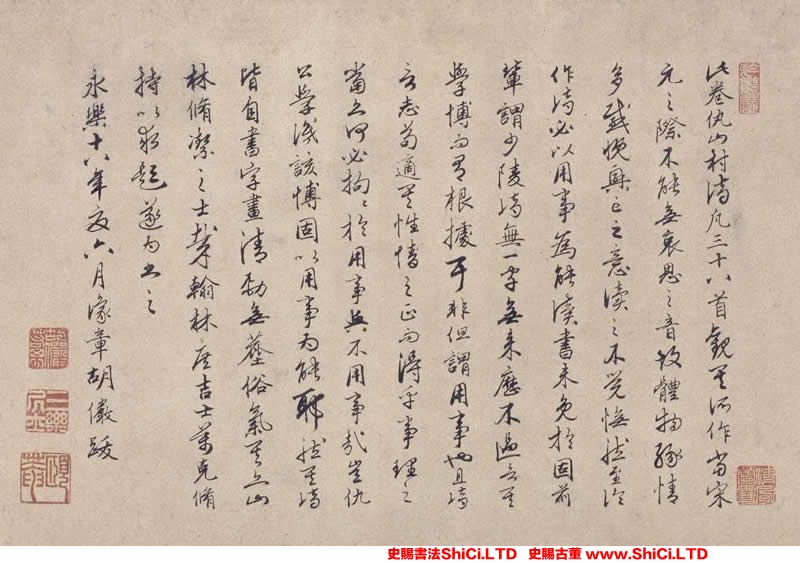 此卷仇山村詩凡三十八首觀其所作當宋
元之際不能無哀思之音故體物緣情
多感慨興亡之意讀之不覺悽然至論
作詩必以用事為能讀書未免於固前
輩謂少陵詩無一字無來歷不過言其
學博而有根據耳非但謂用事也且詩
言志苟適其性情之正而得乎事理之
當又何必拘〻於用事與不用事哉豈仇
公學識該博固以用事為能耶然其詩
皆自書字畫清勁無塵俗氣其亦山
林脩潔之士歟翰林庶吉士萬克脩
持以求題遂為書之
永樂十八年夏六月豫章胡儼跋
史賜書法ShiCi.LTD 史賜古董 www.ShiCi.LTD